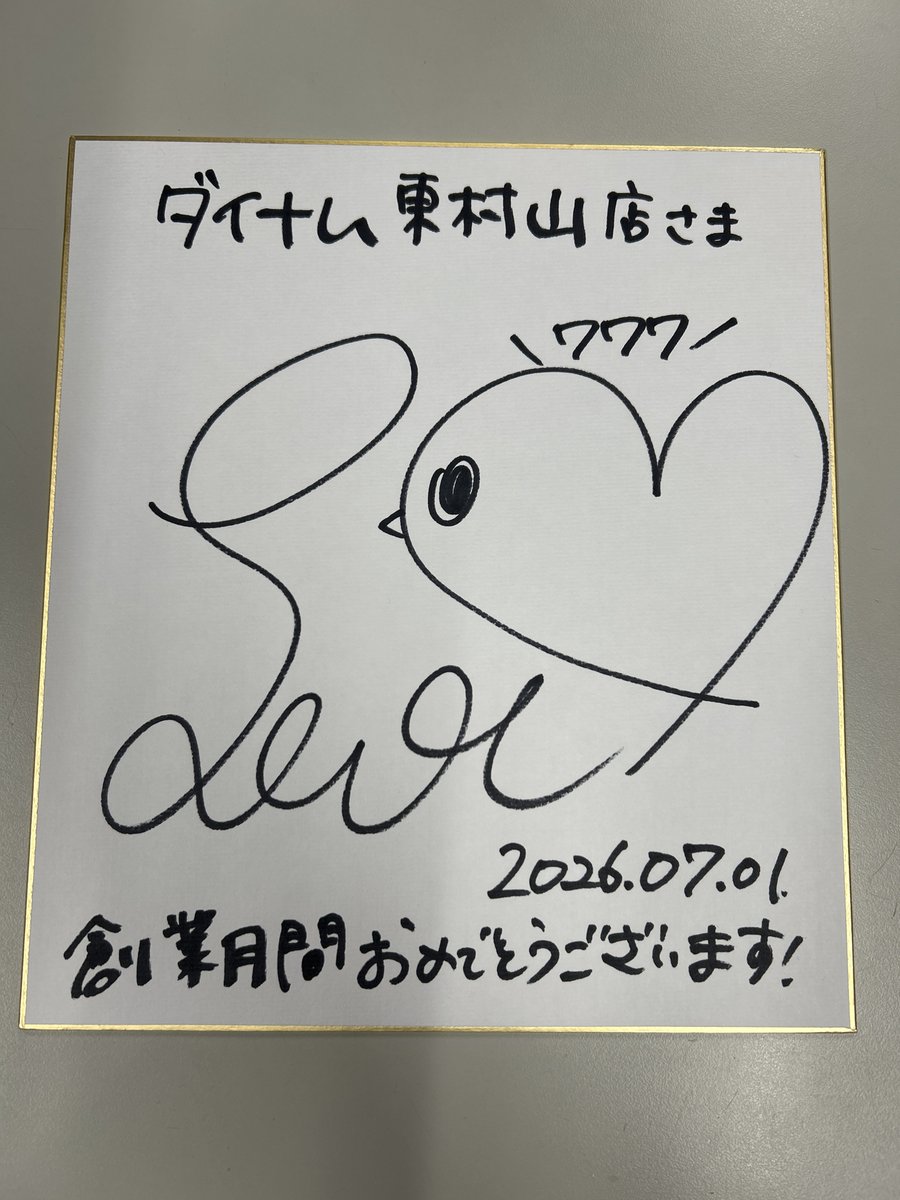 ダイナム東村山店さま
\ワワワ/
2026.07.01.
創業月間おめでとうございます!